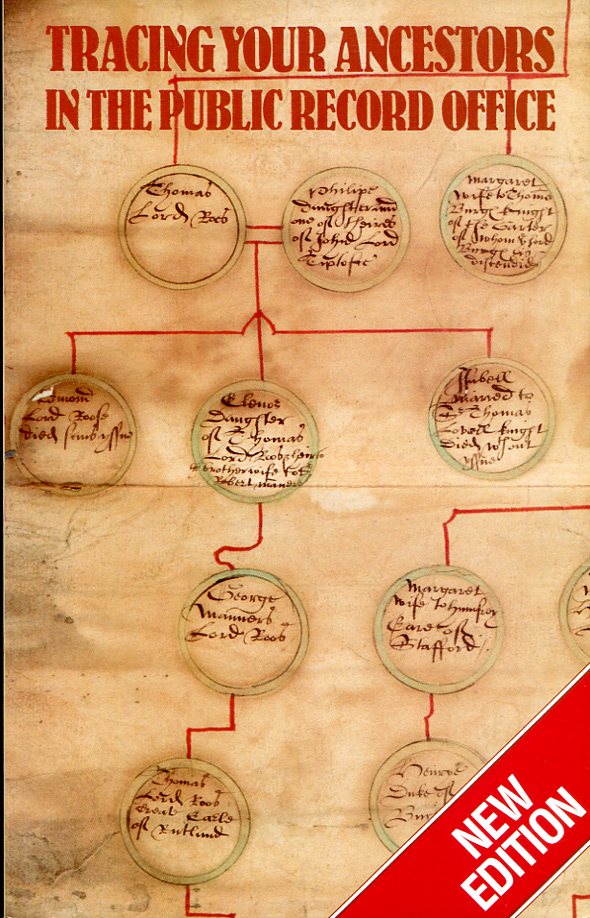 TRACING YOUR ANCESTORS
IN THE PUBLIC RECORD OFFICE
Thomas
Lord Roos
Philipe
Daughter and
one of theires
of John Lord
Tiptoft
Margaret
wife to Thoms
Burgh knight
of the Garter
of whom the lord
Burgh is
discendid
Lord Roose
died sans issue
Elenor
Daughter
of Thomas
Lord Roos
Robert maners
Issabell
maried to
Sr Thomas
Lovell knight
died wtout
issue
George
Manners
Lord Roos
Margaret
wife to humfrey
Earle of
Stafford
Thomas
Lord Roos
creat Earle
of Rutland
Duke of
NEW
EDITION